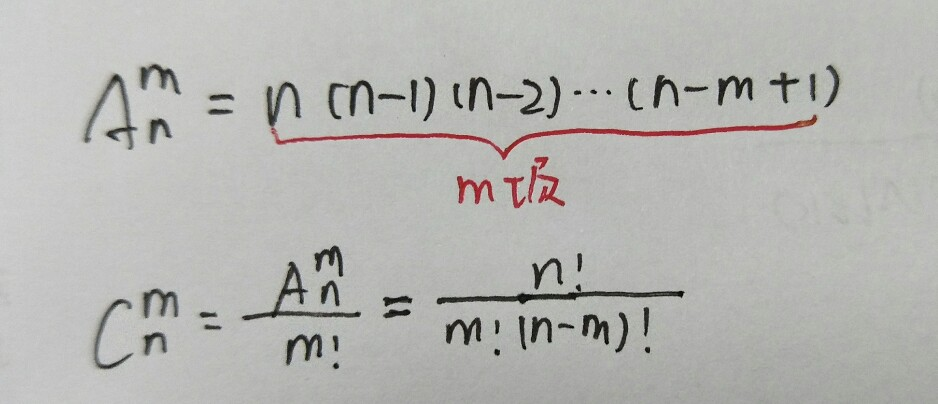 Aₙᵐ = n(n-1)(n-2)···(n-m+1)
m项
Cₙᵐ = Aₙᵐ/m! = n!/m!(n-m)!